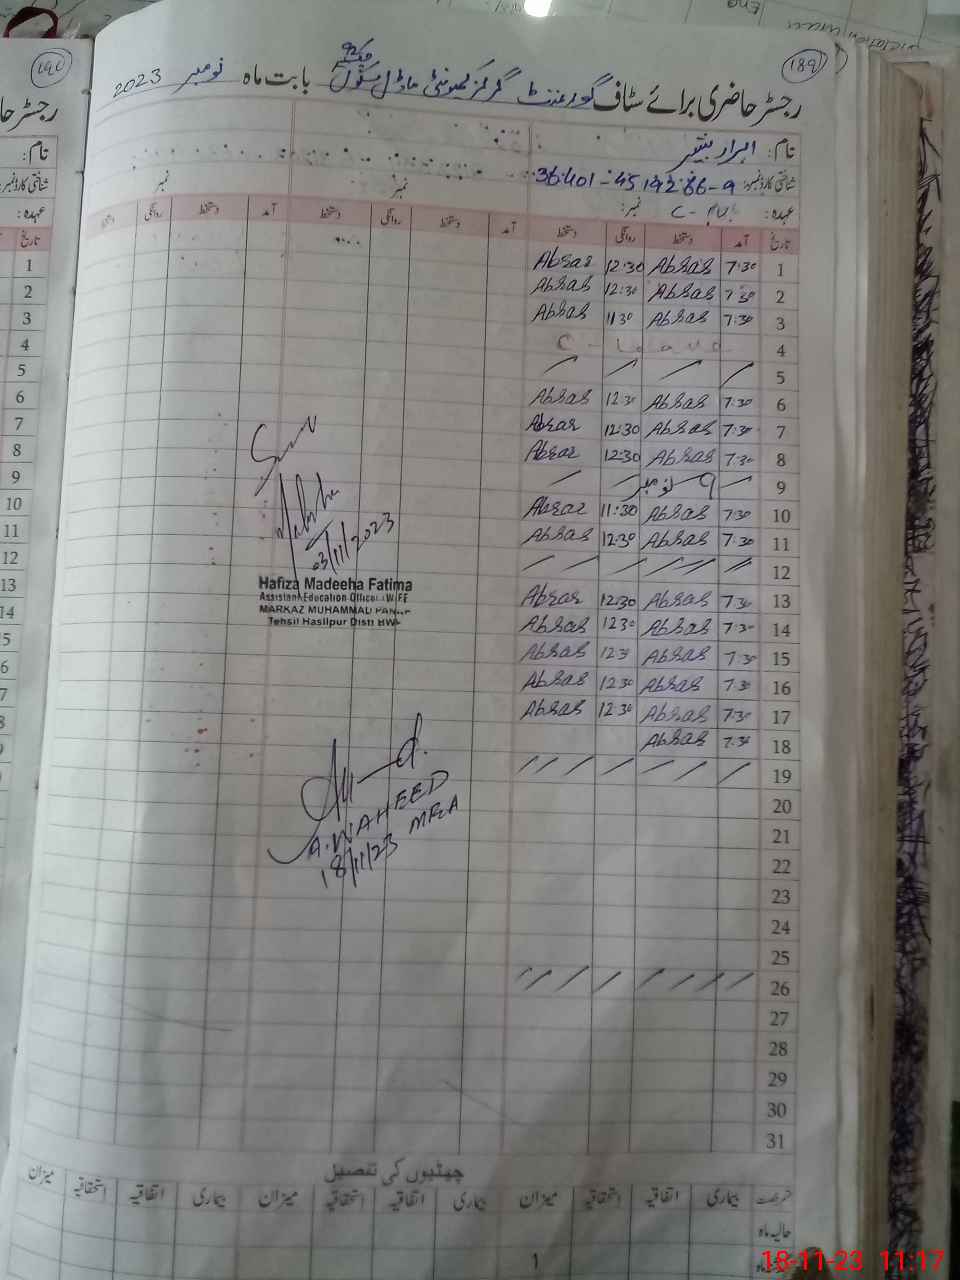 189
رجسٹر حاضری برائے سٹاف گورنمنٹ گرلز کمیونٹی ماڈل سکول بابت ماہ نومبر 2023
نام: ابرار
شناختی کارڈ نمبر: 36401-4519286-9
نمبر نمبر
عہدہ: نمبر:
تاریخ آمد دستخط روانگی دستخط آمد دستخط روانگی دستخط آمد دستخط روانگی دستخط
1 7:30 Absar 12:30 Absar
2 7:30 Absar 12:30 Absar
3 7:30 Absar 11:30 Absar
4 C-Leave
5
6 7:30 Absar 12:30 Absar
7 7:30 Absar 12:30 Absar
8 7:30 Absar 12:30 Absar
9 9 نومبر
10 7:30 Absar 11:30 Absar
11 7:30 Absar 12:30 Absar
12
13 7:30 Absar 12:30 Absar
14 7:30 Absar 12:30 Absar
15 7:30 Absar 12:30 Absar
16 7:30 Absar 12:30 Absar
17 7:30 Absar 12:30 Absar
18 7:30 Absar
19
20
21
22
23
24
25
26
27
28
29
30
31
03/11/2023
Hafiza Madeeha Fatima
Assistant Education Officer (W-EE
MARKAZ MUHAMMAD
Tehsil Hasilpur Distt BWP
A.WAHEED
MEA
18/11/23
چھٹیوں کی تفصیل
رخصت بیماری اتفاقیہ استحقاقیہ میزان بیماری اتفاقیہ استحقاقیہ میزان بیماری اتفاقیہ استحقاقیہ میزان
حالیہ ماہ
1
18-11-23 11:17
190
رجسٹر حا
نام:
شناختی کارڈ نمبر:
عہدہ:
تاریخ
1
2
3
4
5
6
7
8
9
10
11
12
13
14